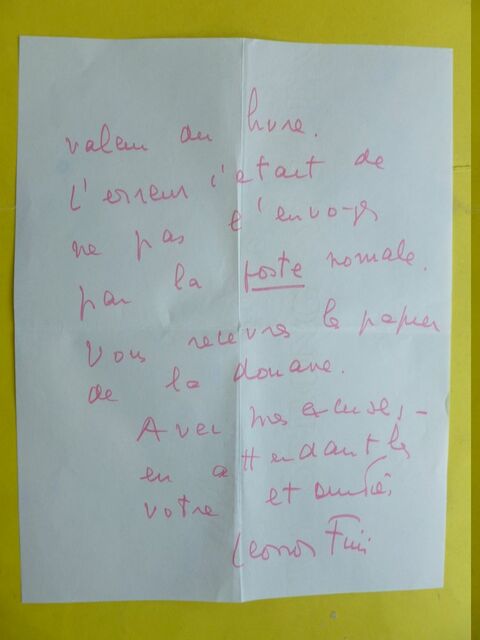 valeur du livre.
L'erreur c'etait de
ne pas l'envoyer
par la poste normale.
Vous recevrez le papier
de la douane.
Avec mes excuses -
en attendant la
votre et amitiés
Leonor Fini